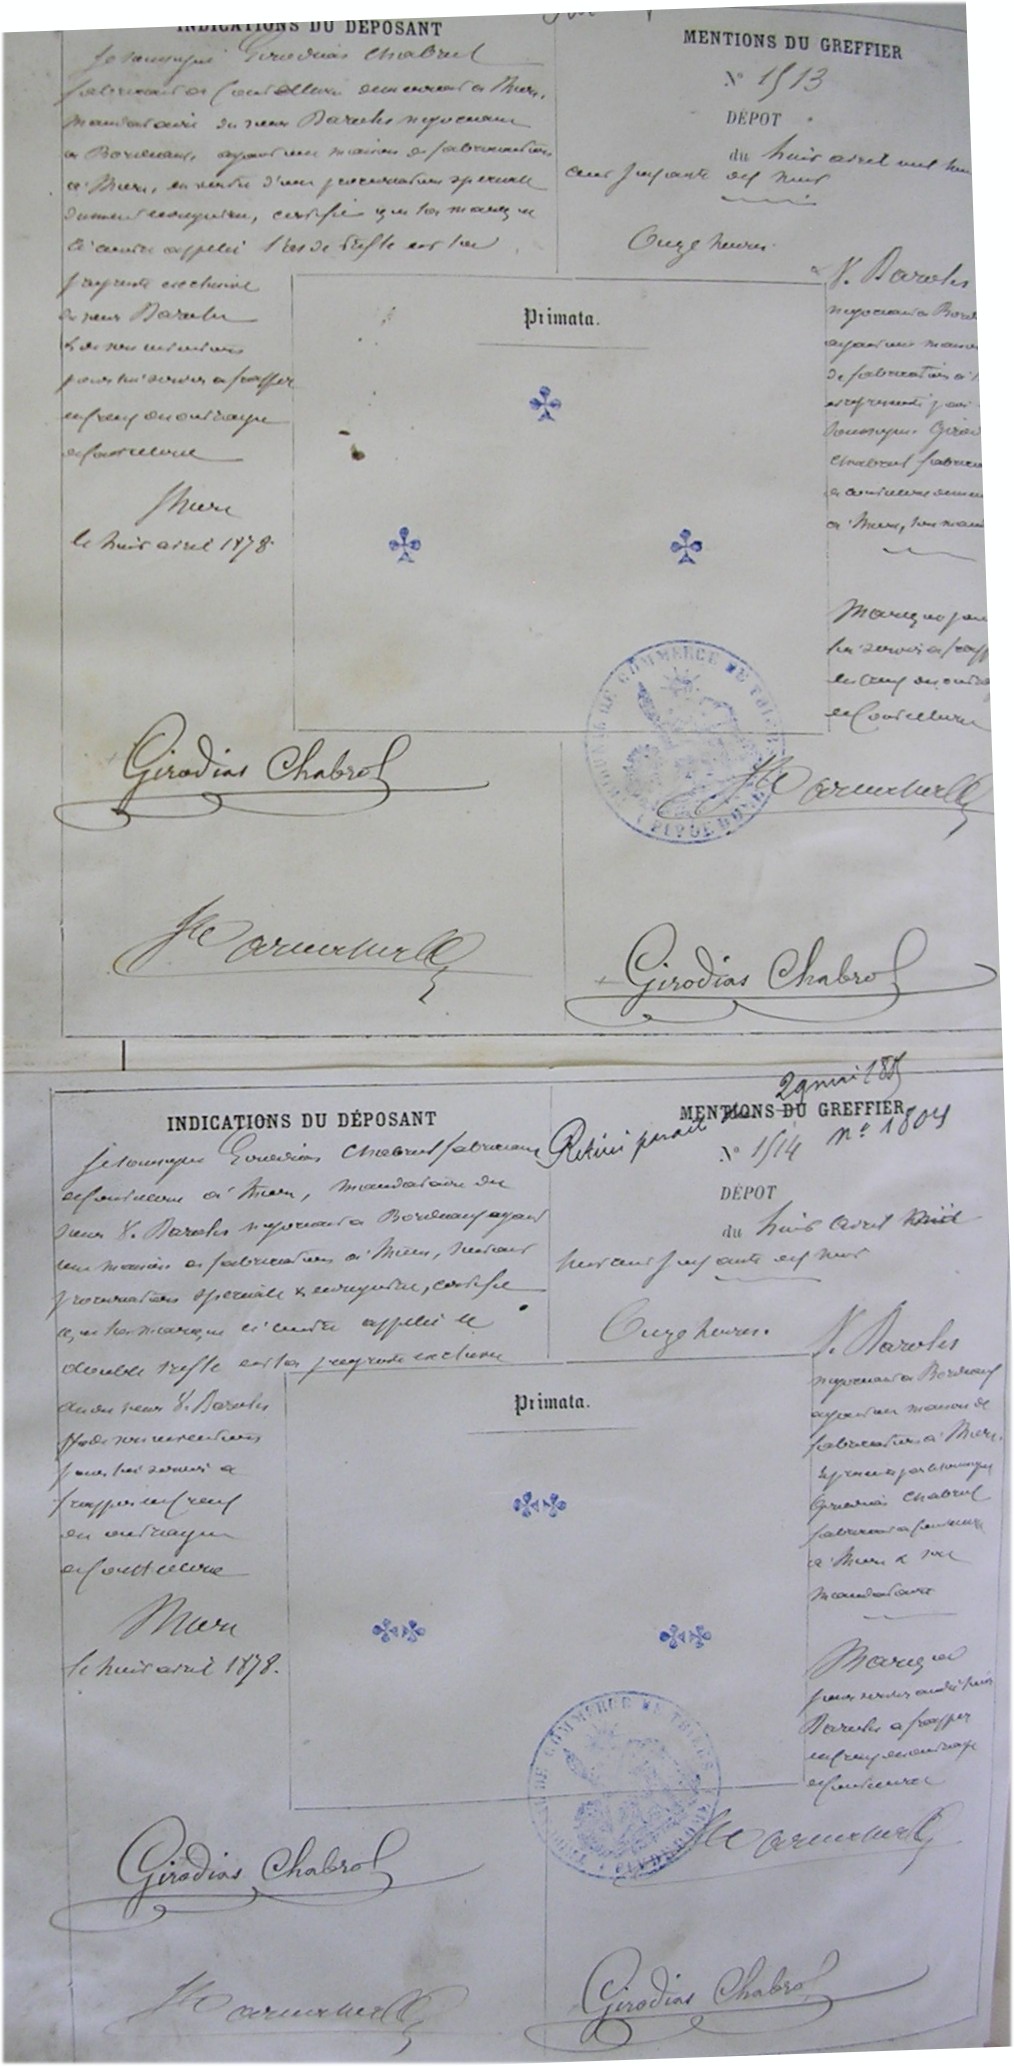 INDICATIONS DU DÉPOSANT
Je soussigné Girodias Chabrol
fabricant de Coutellerie demeurant à Thiers,
mandataire du sieur Barolis négociant
à Bordeaux, ayant une maison de fabrication
à Thiers, en vertu d'une procuration spéciale
dument enregistrée, certifie que la marque
ci contre appelée l'as de trèfle est la
propriété exclusive
du sieur
& de son invention
pour lui servir à frapper
en creux des ouvrages
de Coutellerie
Thiers
le huit avril 1878.
MENTIONS DU GREFFIER
N° 1513
DÉPOT
du huit avril mil huit
cent soixante dix huit
Onze heures.
V.
négociant à Bord
ayant une maison
de fabrication à T
représenté par
soussigné Girod
Chabrol fabrican
de coutellerie demeu
à Thiers, son mand
Marque pour
lui servir à frapp
en creux des ouvra
de Coutellerie
Primata.
TRIBUNAL DE COMMERCE DE THIERS
PUY DE DOME
Girodias Chabrol
Girodias Chabrol
INDICATIONS DU DÉPOSANT
Je soussigné Girodias Chabrol fabricant
de Coutellerie à Thiers, mandataire du
sieur V. négociant à Bordeaux ayant
une maison de fabrication à Thiers, suivant
procuration spéciale & enregistrée, certifie
que la marque ci contre appelée le
double trèfle est la propriété exclusive
dudit sieur V.
& de son invention
pour lui servir à
frapper en creux
des ouvrages
de Coutellerie
Thiers
le huit avril 1878.
29 mai 1885
MENTIONS DU GREFFIER
Retiré n° 1804
N° 1514
DÉPOT
du huit avril mil
huit cent soixante dix huit
Onze heures.
V.
négociant à Bordeaux
ayant une maison de
fabrication à Thiers.
représenté par le soussigné
Girodias Chabrol
fabricant de coutellerie
à Thiers & son
mandataire
Marque
pour servir audit sieur
à frapper
en creux des ouvrages
de Coutellerie
Primata.
TRIBUNAL DE COMMERCE DE THIERS
PUY DE DOME
Girodias Chabrol
Girodias Chabrol